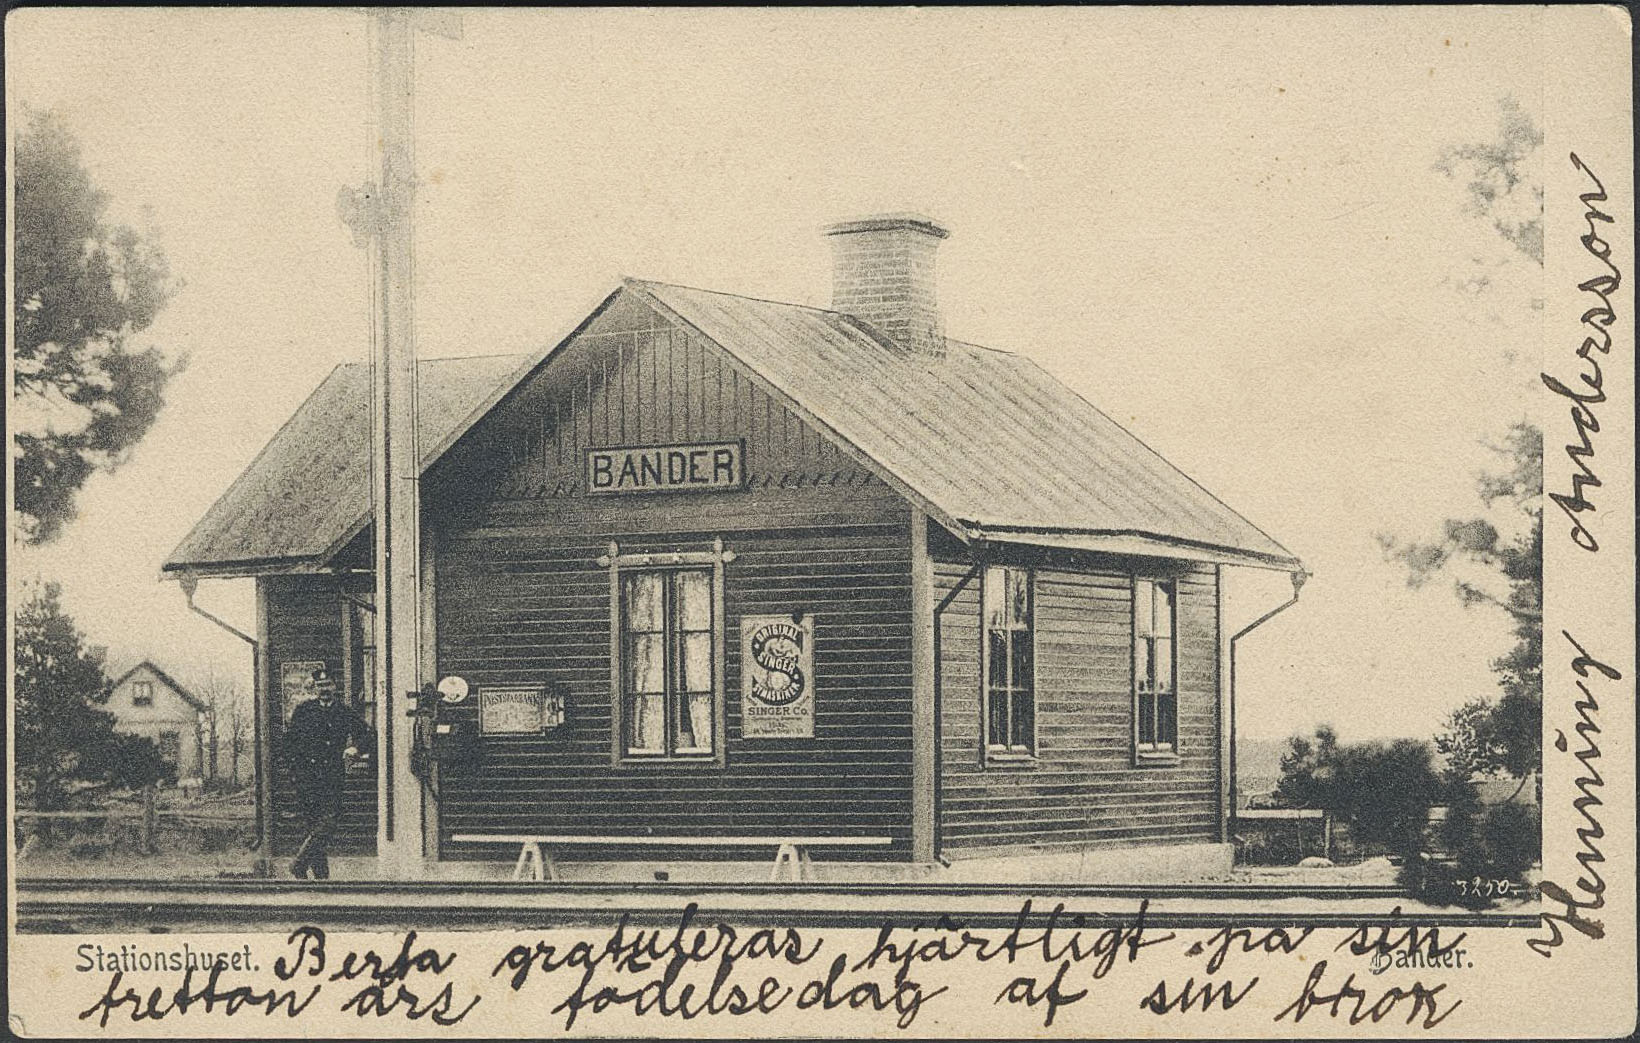 BANDER
ORIGINAL
SINGER
SINGER Co.
POSTSPARBANK
3250.
Stationshuset.
Bander.
Berta gratuleras hjärtligt på sin
tretton års födelsedag af sin bror
Henning Andersson